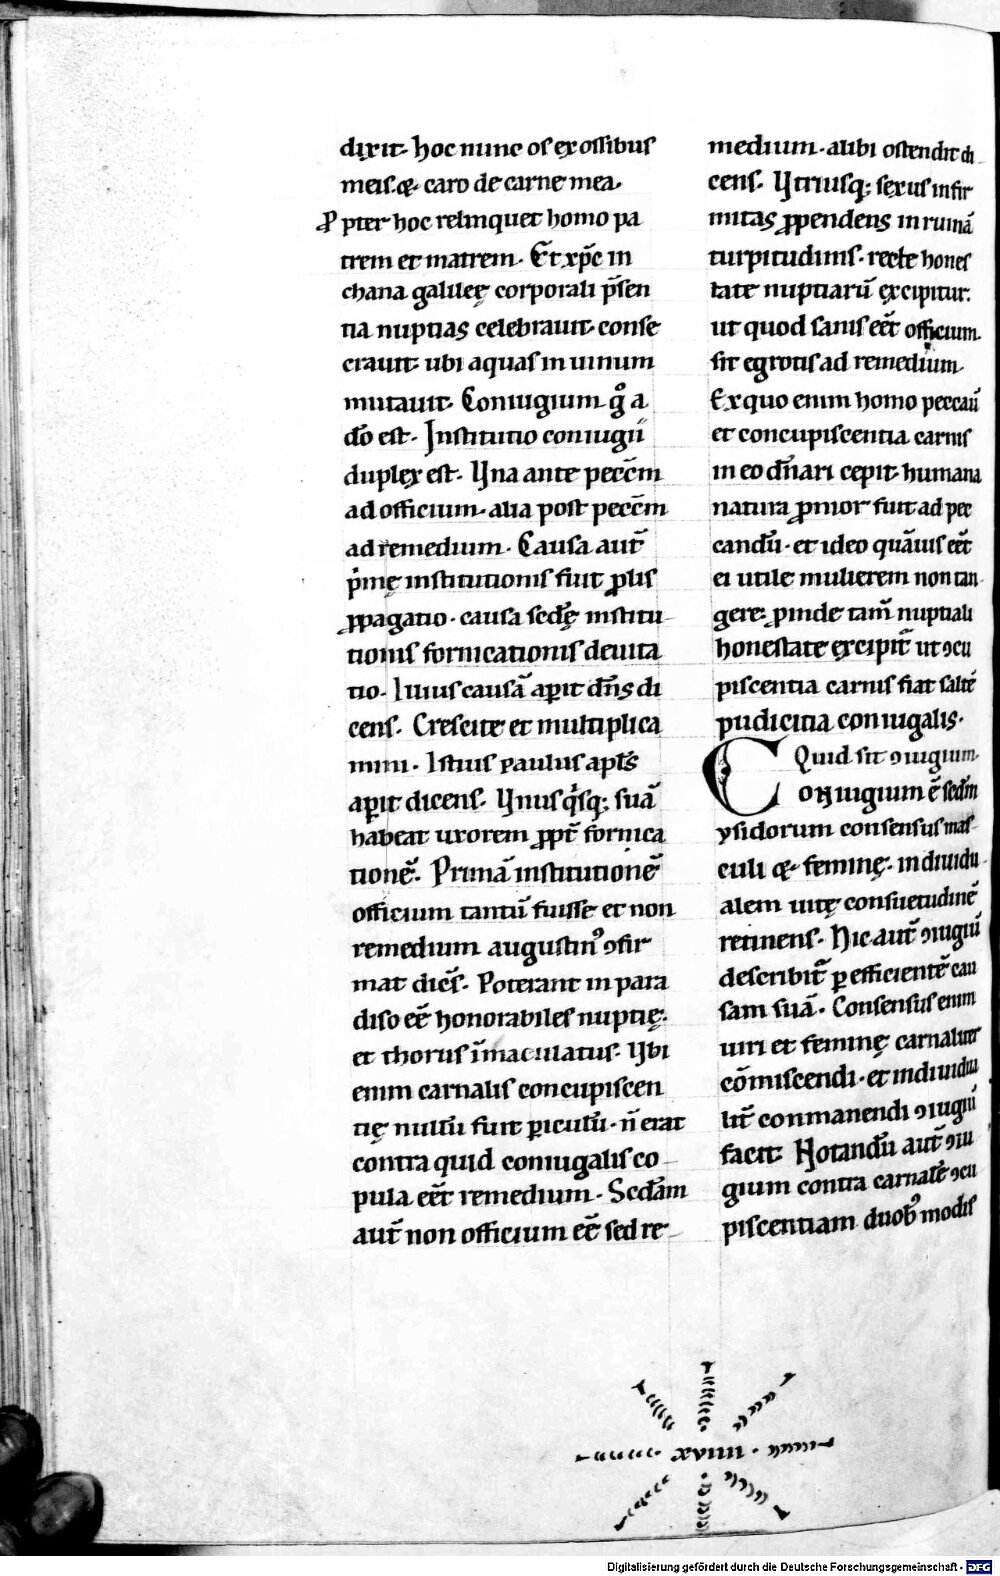 dixit. hoc nunc os ex ossibus
meis. & caro de carne mea.
Ꝓpter hoc relinquet homo pa
trem et matrem. Et xp̄c in
chana galileę corporali p̄sen
tia nuptias celebrauit. conse
crauit. ubi aquas in uinum
mutauit. Coniugium gͦ a
do̅ est. Institutio coniugii
duplex est. Una ante pecc̄m
ad officium. alia post pecc̄m
ad remedium. Causa aut̄
p̍mę institutionis fuit ꝓlis
ꝓpagatio. causa scd̄ę institu
tionis fornicationis deuita
tio. Illius causā aꝑit dn̄s di
cens. Crescite et multiplica
mini. Istius paulus apl̄s
aꝑit dicens. Unusq̍sq; suā
habeat uxorem ꝓpt̄ fornica
tionē. Primā institutionē
officium tantū fuisse et non
remedium augustin⁹ ꝯfir
mat dicēs. Poterant in para
diso eē honorabiles nuptię.
et thorus īmaculatus. Ubi
enim carnalis concupiscen
tię nullū fuit ꝑiculū. n̄ erat
contra quid coniugalis co
pula eēt remedium. Scd̄am
aut̄ non officium eē sed re
medium. alibi ostendit di
cens. Utriusq; sexus infir
mitas ꝓpendens in ruinā
turpitudinis. recte hones
tate nuptiarū excipitur.
ut quod sanis eēt officium.
sit egrotis ad remedium.
Ex quo enim homo peccaū
et concupiscentia carnis
in eo dn̄ari cepit. humana
natura ꝓnior fuit ad pec
candū. et ideo quāuis eēt
ei utile mulierem non tan
gere. ꝓinde tam̄ nuptiali
honestate excipit̄ ut ꝯcu
piscentia carnis fiat saltē
pudicitia coniugalis.
Quid sit ꝯiugium.
Coniugium ē scd̄m
ysidorum consensus mas
culi & feminę. indiuidu
alem uitę consuetudinē
retinens. Hic aut̄ ꝯiugiū
describit̄ ꝑ efficientē cau
sam suā. Consensus enim
uiri et feminę carnaliter
cōmiscendi. et indiuidua
lit̄ conmanendi ꝯiugiū
facit. Notandū aut̄ ꝯiu
gium contra carnalē ꝯcu
piscentiam duob⁹ modis
. xviiii .
Digitalisierung gefördert durch die Deutsche Forschungsgemeinschaft - DFG